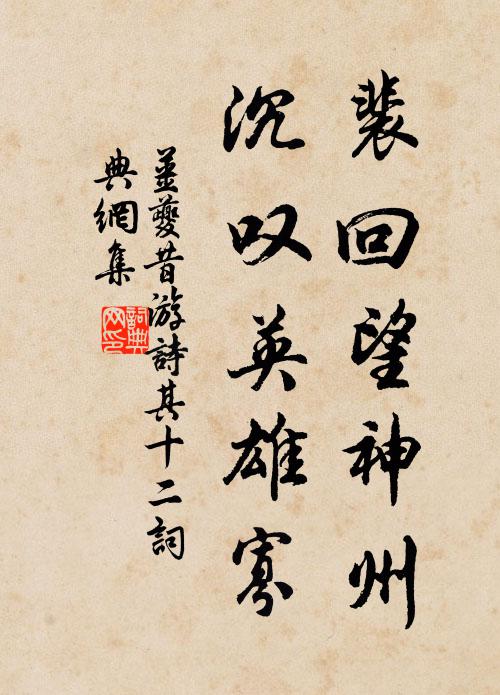 裴回望神州
沉叹英雄寡
姜夔昔游詩其十二詞
典網集
詞典
网印